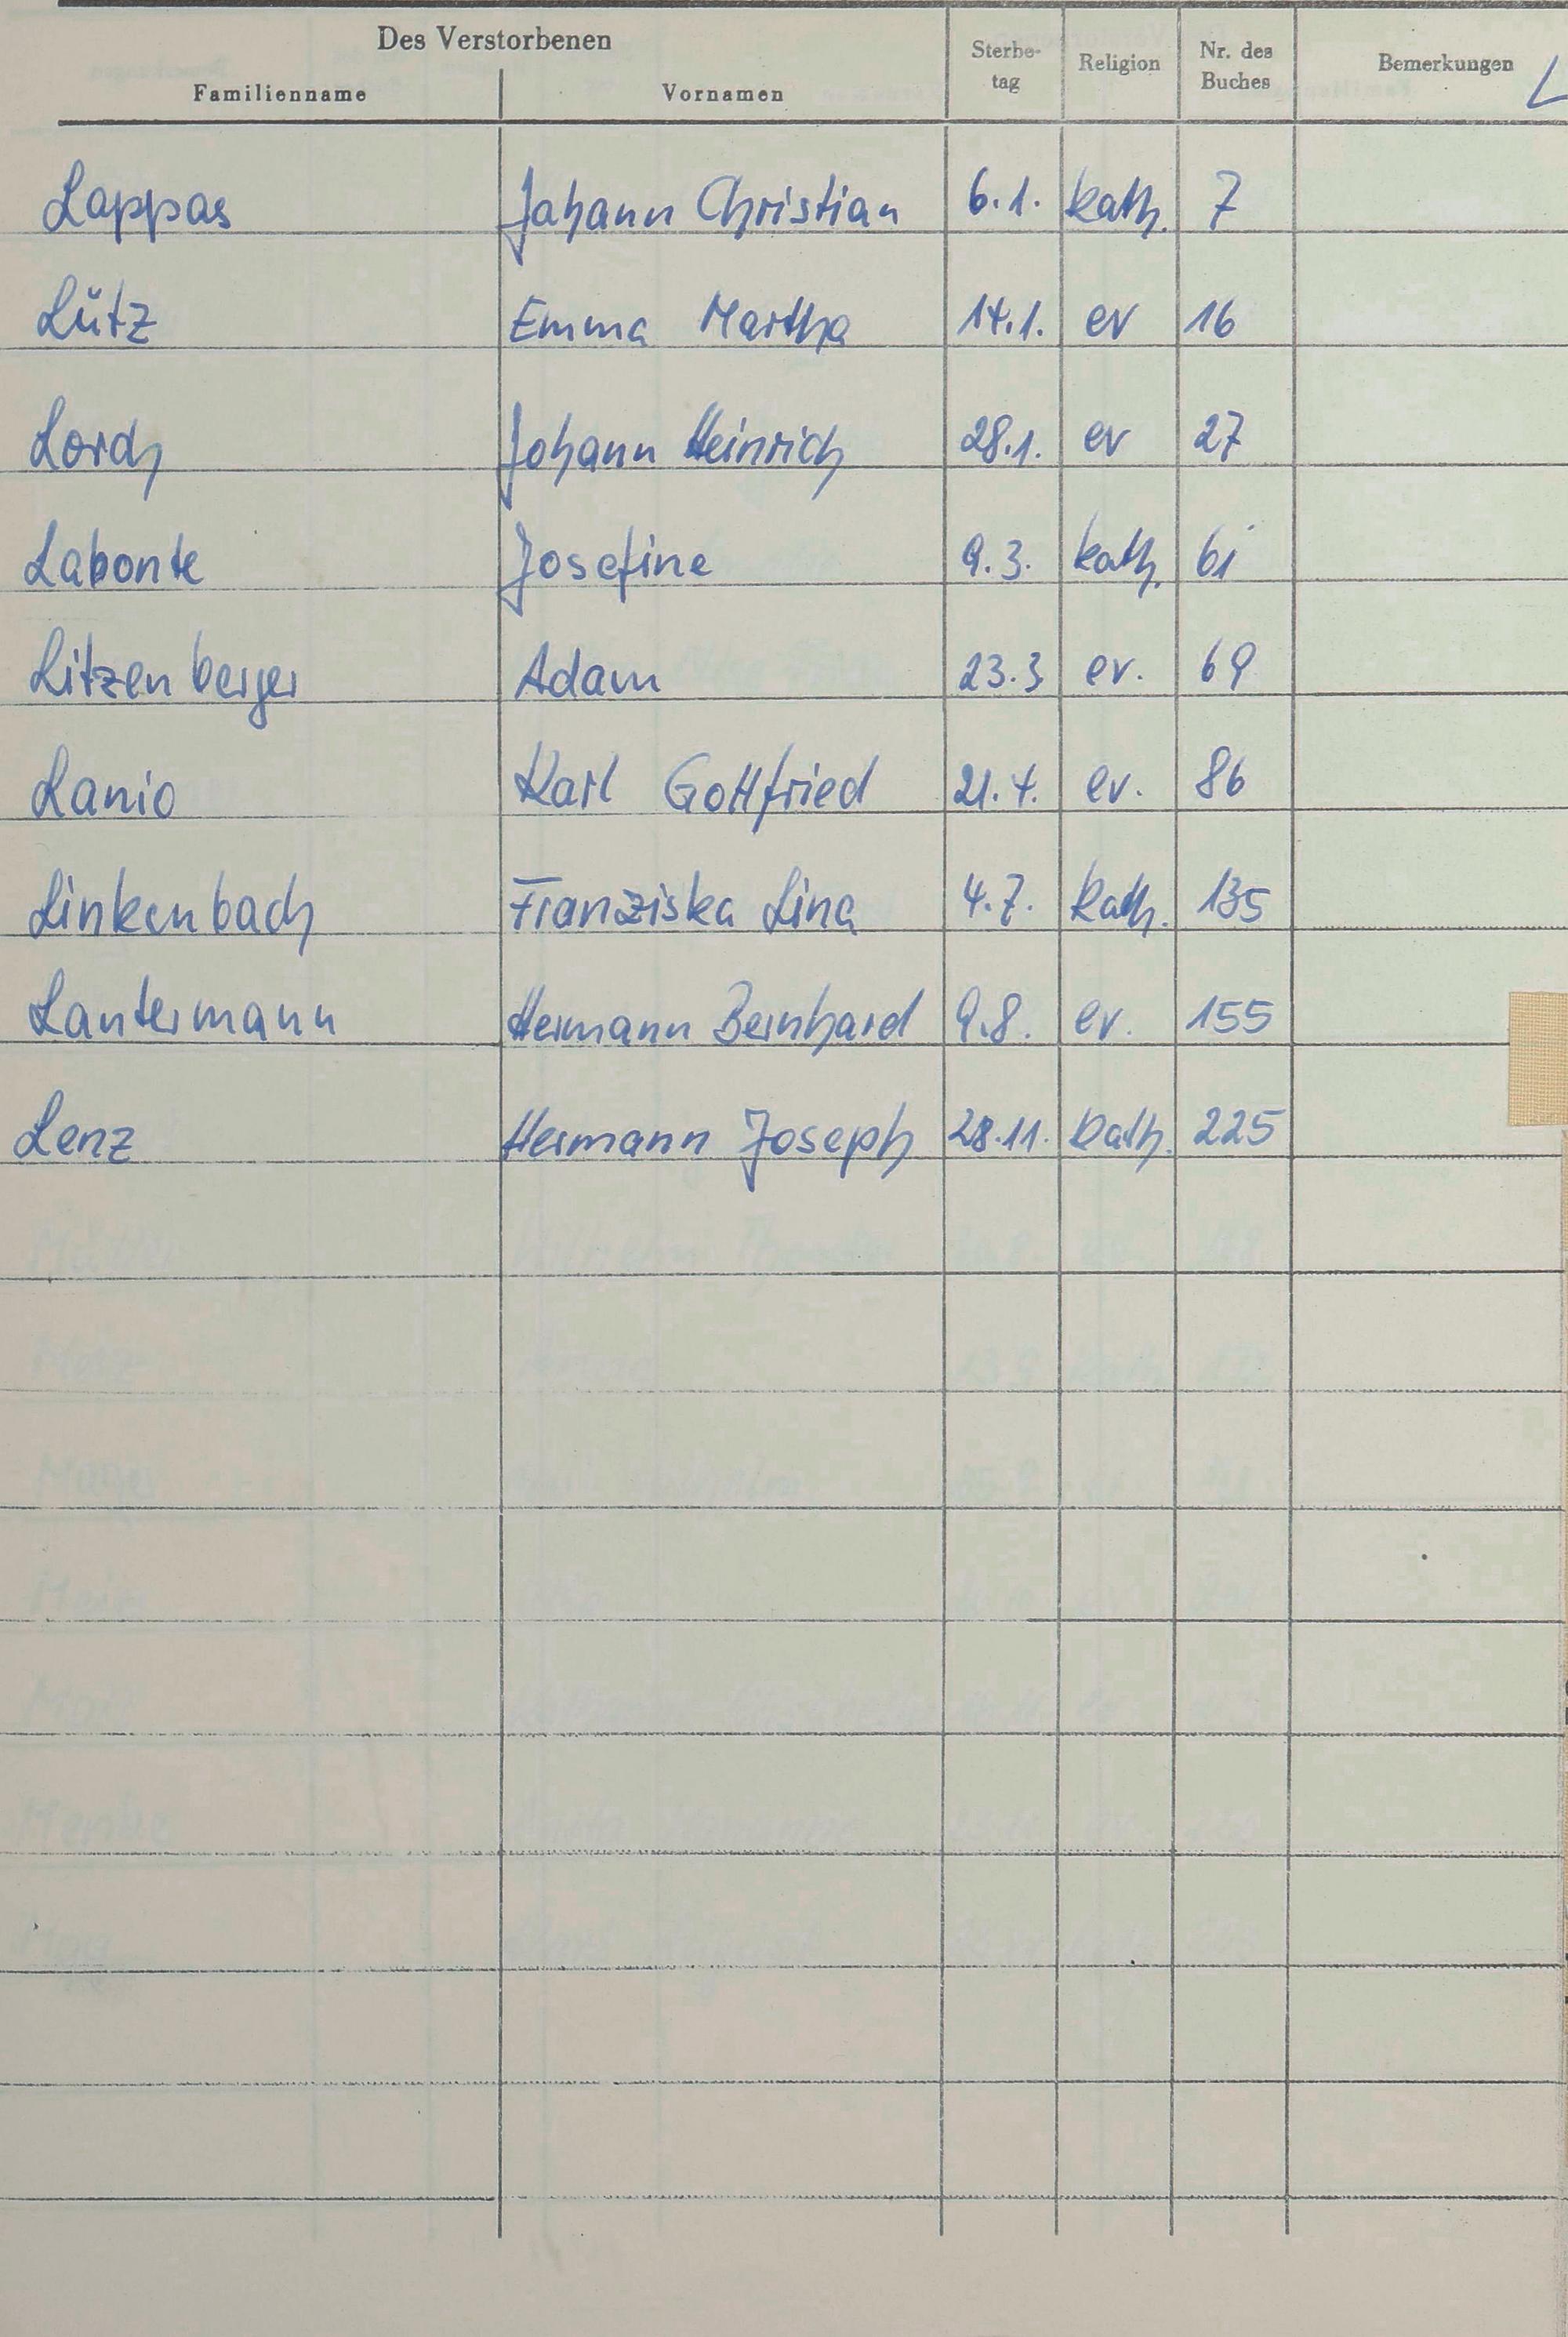 Des Verstorbenen
Familienname Vornamen Sterbe-tag Religion Nr. des Buches Bemerkungen L
Lappas Johann Christian 6.1. kath. 7
Lütz Emma Martha 14.1. ev 16
Lorch Johann Heinrich 28.1. ev 27
Labonte Josefine 9.3. kath. 61
Litzenberger Adam 23.3 ev. 69
Lanio Karl Gottfried 21.4. ev. 86
Linkenbach Franziska Lina 4.7. kath. 135
Lantermann Hermann Bernhard 9.8. ev. 155
Lenz Hermann Joseph 28.11. kath. 225